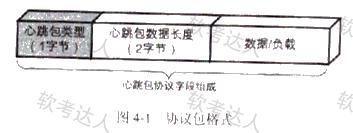 心跳包类型
(1字节)
心跳包数据长度
(2字节)
数据/负载
心跳包协议字段组成
图4-1 协议包格式
软考达人
软考达人
软考达人
软考达人